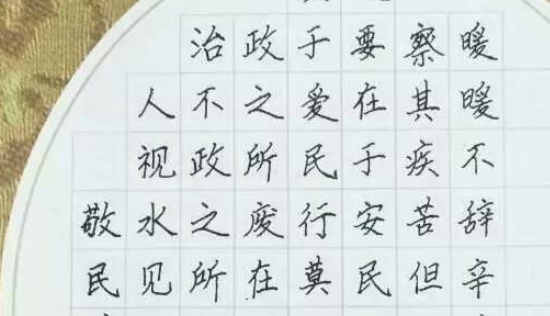 暖暖不辞辛
察其疾苦但
要在于安民
于爱民行莫
政之所废在
治不政之所
人视水见
敬民